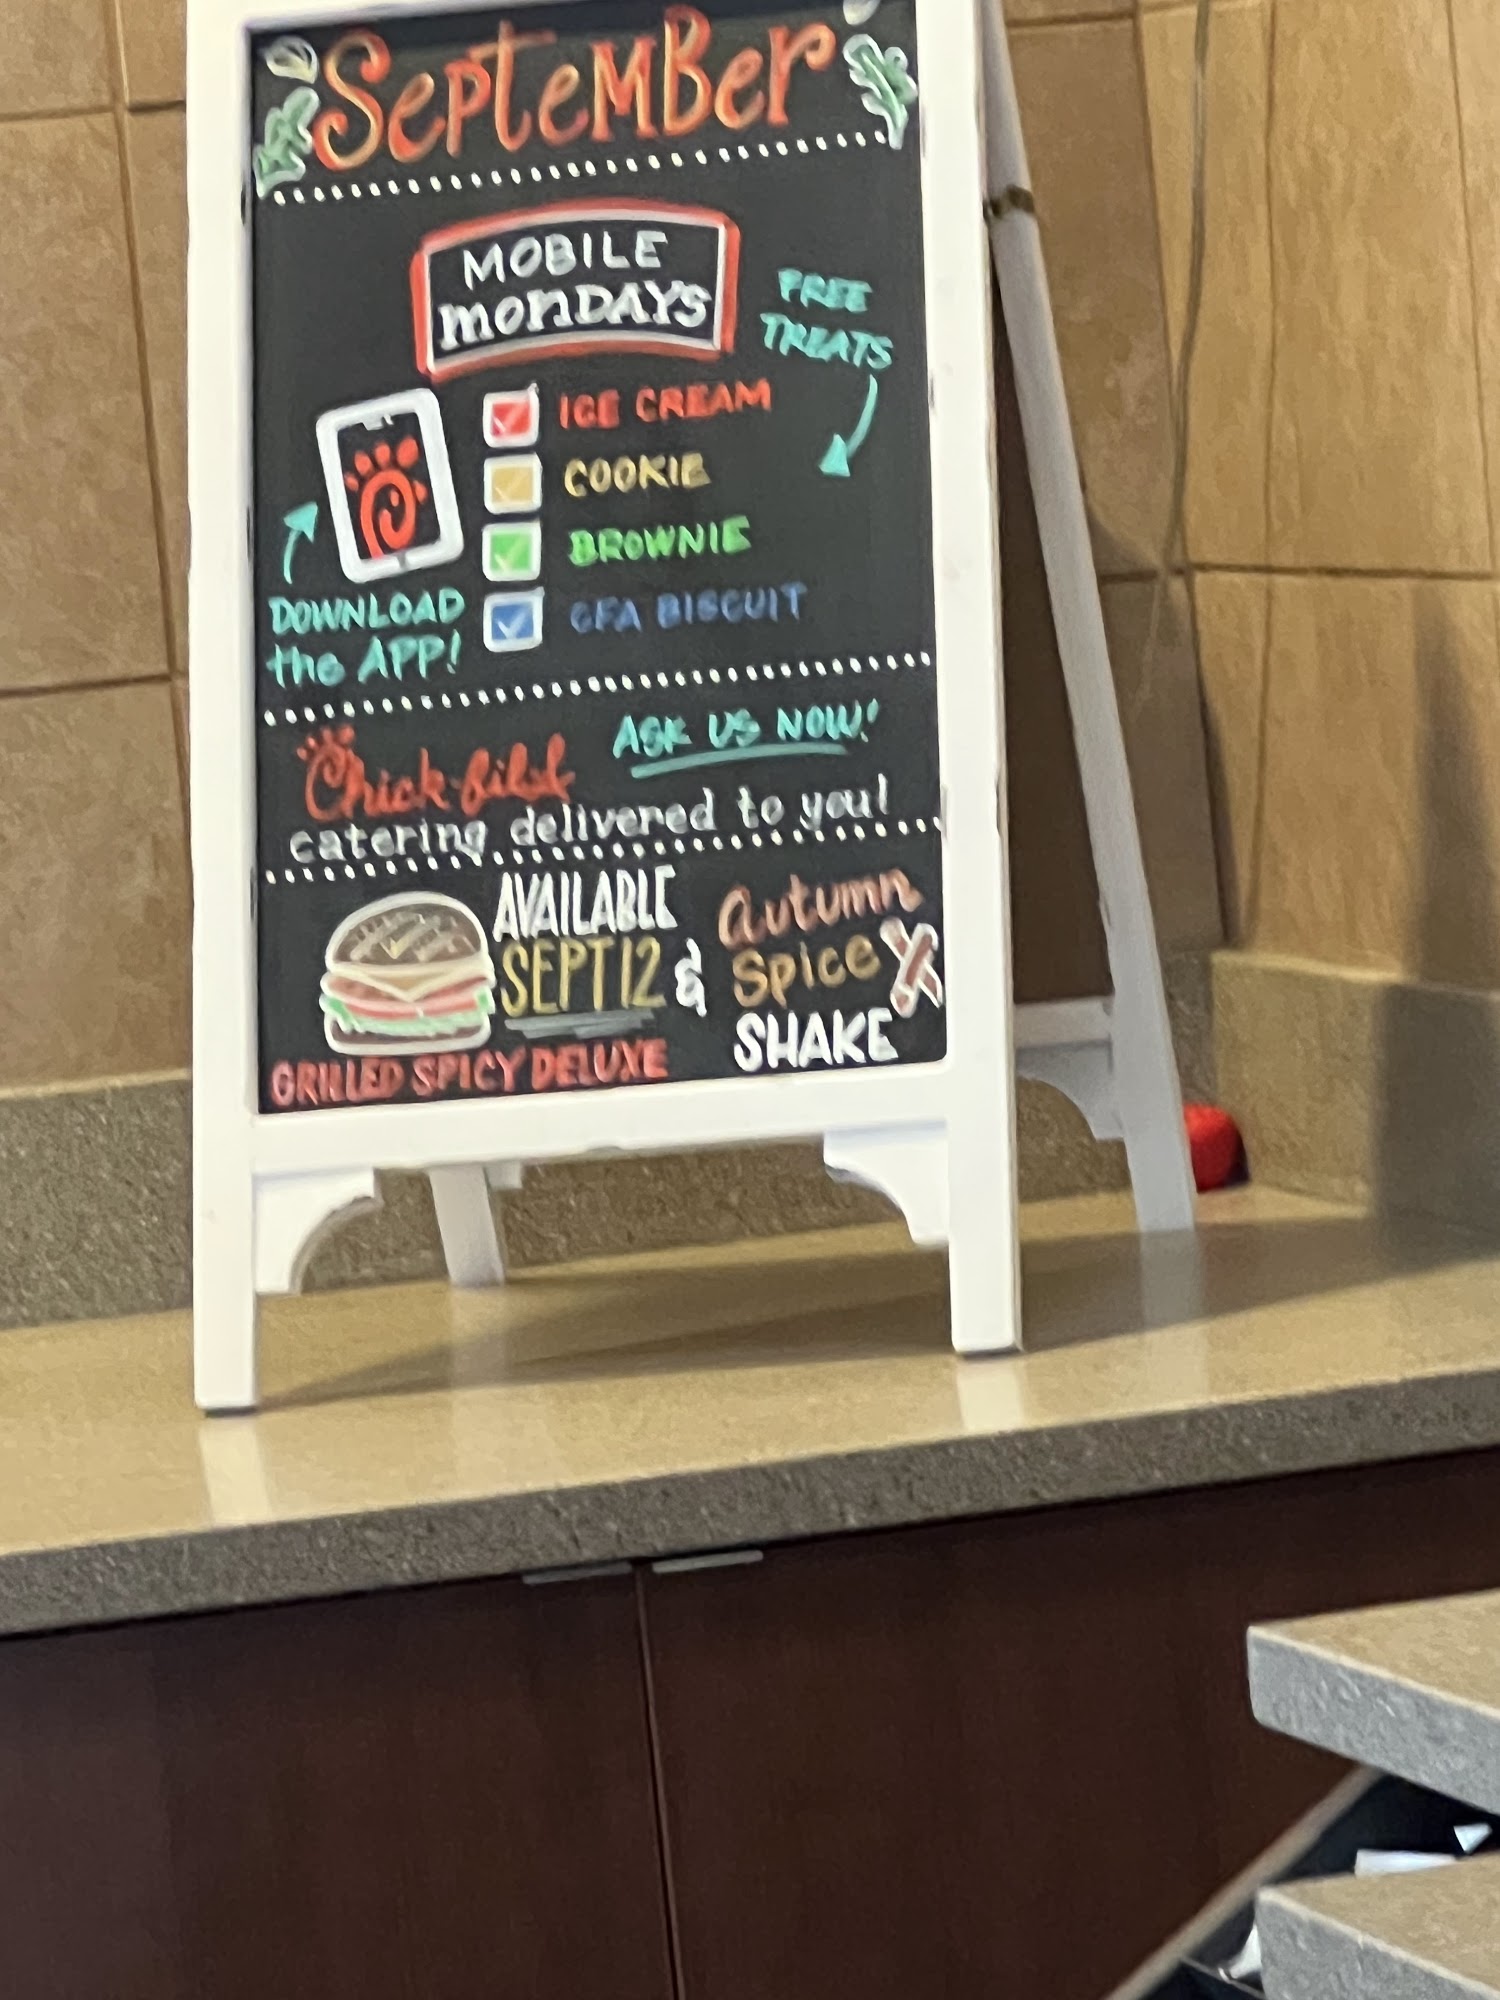 September
MOBILE
MONDAYS
FREE
TREATS
ICE CREAM
COOKIE
BROWNIE
CFA BISCUIT
DOWNLOAD
the APP!
Chick-fil-A
ASK US NOW!
catering delivered to you!
AVAILABLE
SEPT 12
&
Autumn
Spice
SHAKE
GRILLED SPICY DELUXE